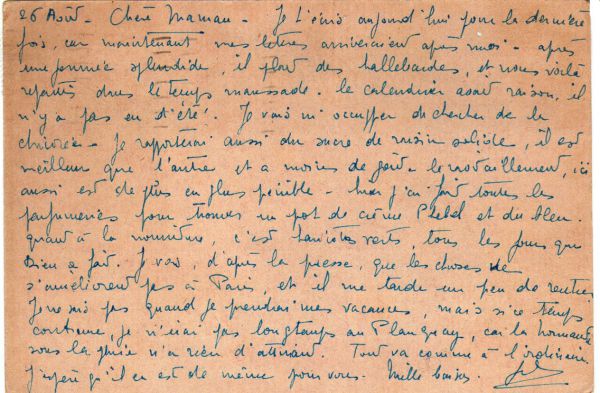 26 Août - Chère Maman - Je t'écris aujourd'hui pour la dernière
fois, car maintenant mes lettres arriveraient après moi - après
une journée splendide, il pleut des hallebardes, et nous voilà
repartis dans le temps maussade. Le calendrier avait raison, il
n'y a pas eu d'été. Je vais m'occuper de chercher de la
chicorée - Je rapporterai aussi du sucre de raisin solide, il est
meilleur que l'autre et a moins de goût - le ravitaillement, ici
aussi est de plus en plus pénible - mais j'ai fait toutes les
parfumeries pour trouver un pot de crème et du bleu.
quant à la nourriture, c'est haricots verts, tous les jours que
Dieu a fait. Je vois, d'après la presse, que les choses ne
s'améliorent pas à Paris, et il me tarde un peu de rentrer
Je ne sais pas quand je prendrai mes vacances, mais si ce temps
continue, je n'irai pas longtemps au Planquay, car la Normandie
sous la pluie n'a rien d'attirant. Tout va comme à l'ordinaire.
J'espère qu'il en est de même pour vous. Mille baisers.